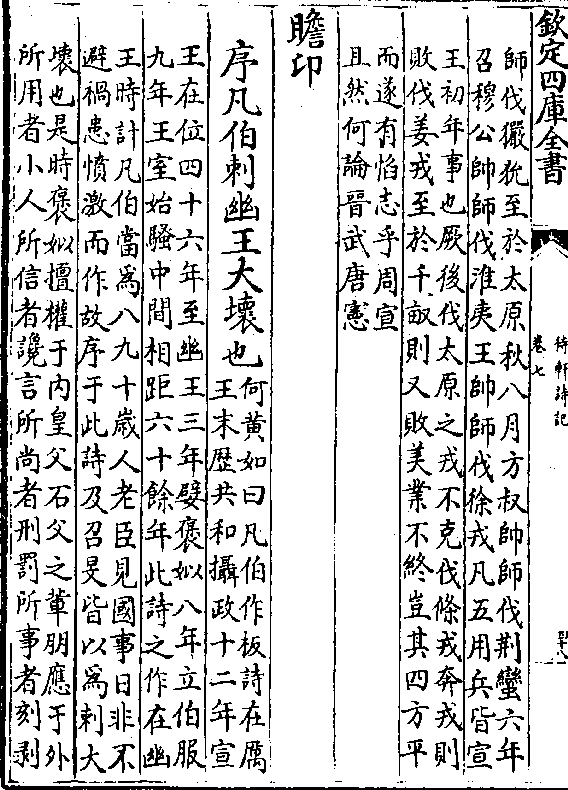 欽定四庫全書
待軒詩記
卷七
師伐玁狁至於太原秋八月方叔帥師伐荆蠻六年
召穆公帥師伐淮夷王帥師伐徐戎凡五用兵皆宣
王初年事也厥後伐太原之戎不克伐條戎奔戎則
敗伐姜戎至於千畝則又敗美業不終豈其四方平
而遂有焰志乎周宣
且然何論晉武唐憲
瞻卬
序凡伯刺幽王大壞也何黄如曰凡伯作板詩在厲
王末歴共和攝政十二年宣
王在位四十六年至幽王三年嬖褒姒八年立伯服
九年王室始騷中間相距六十餘年此詩之作在幽
王時計凡伯當爲八九十歲人老臣見國事日非不
避禍患憤激而作故序于此詩及召旻皆以爲刺大
壞也是時褒姒擅權于内皇父石父之軰朋應于外
所用者小人所信者讒言所尚者刑罰所事者刻剥